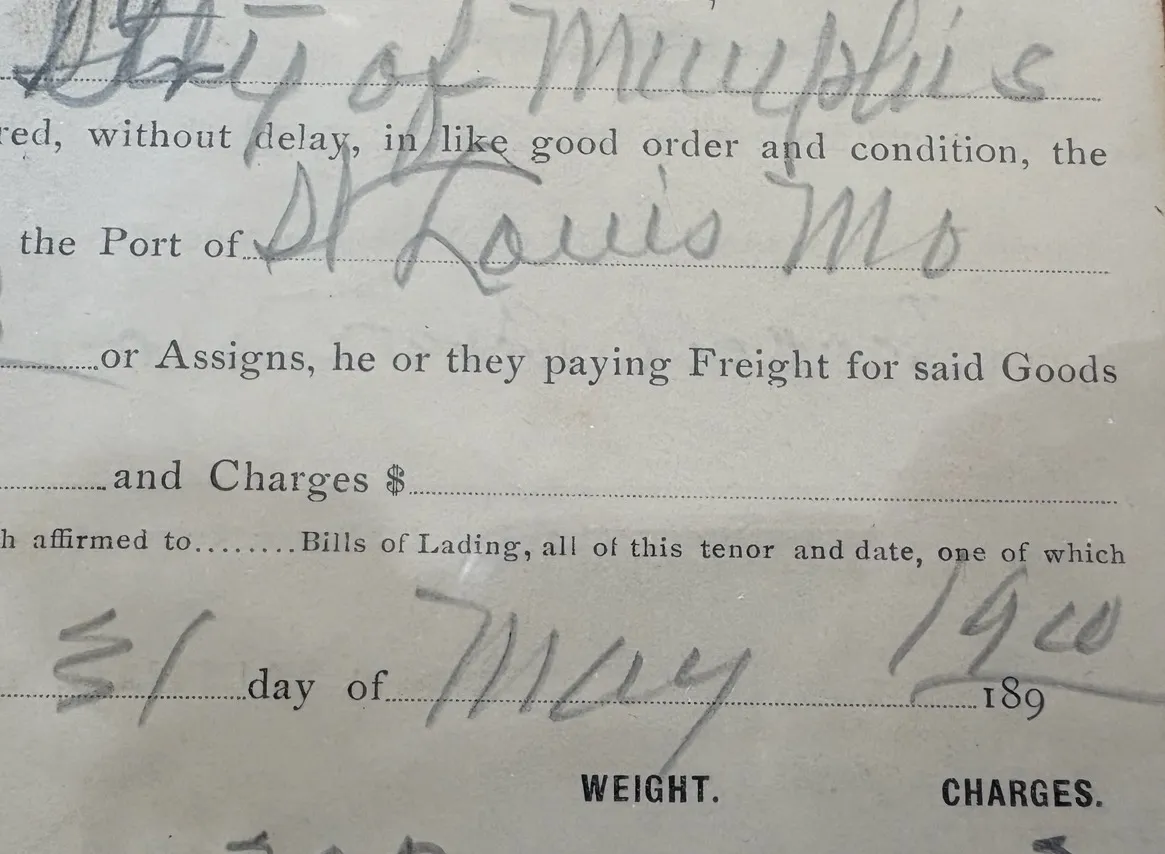 City of Memphis
red, without delay, in like good order and condition, the
the Port of St Louis Mo
or Assigns, he or they paying Freight for said Goods
and Charges $
h affirmed to........Bills of Lading, all of this tenor and date, one of which
31 day of May 1900
189
WEIGHT. CHARGES.